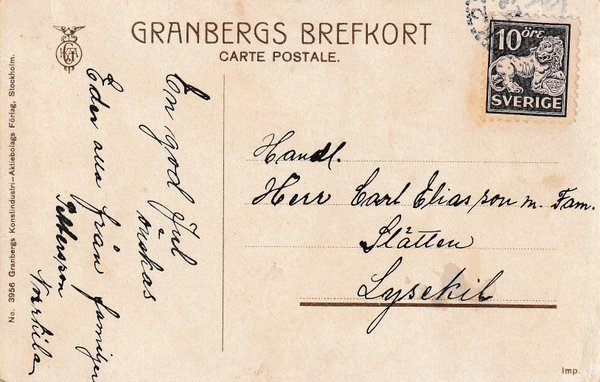 GRANBERGS BREFKORT
CARTE POSTALE.
10 ÖRE
SVERIGE
En god Jul
önskas
Eder alla från familjen
Petterson
Handl.
Herr Carl Eliasson m. Fam.
Slätten
Lysekil
No. 3956 Granbergs Konstindustri-Aktiebolags Förlag, Stockholm.
Imp.